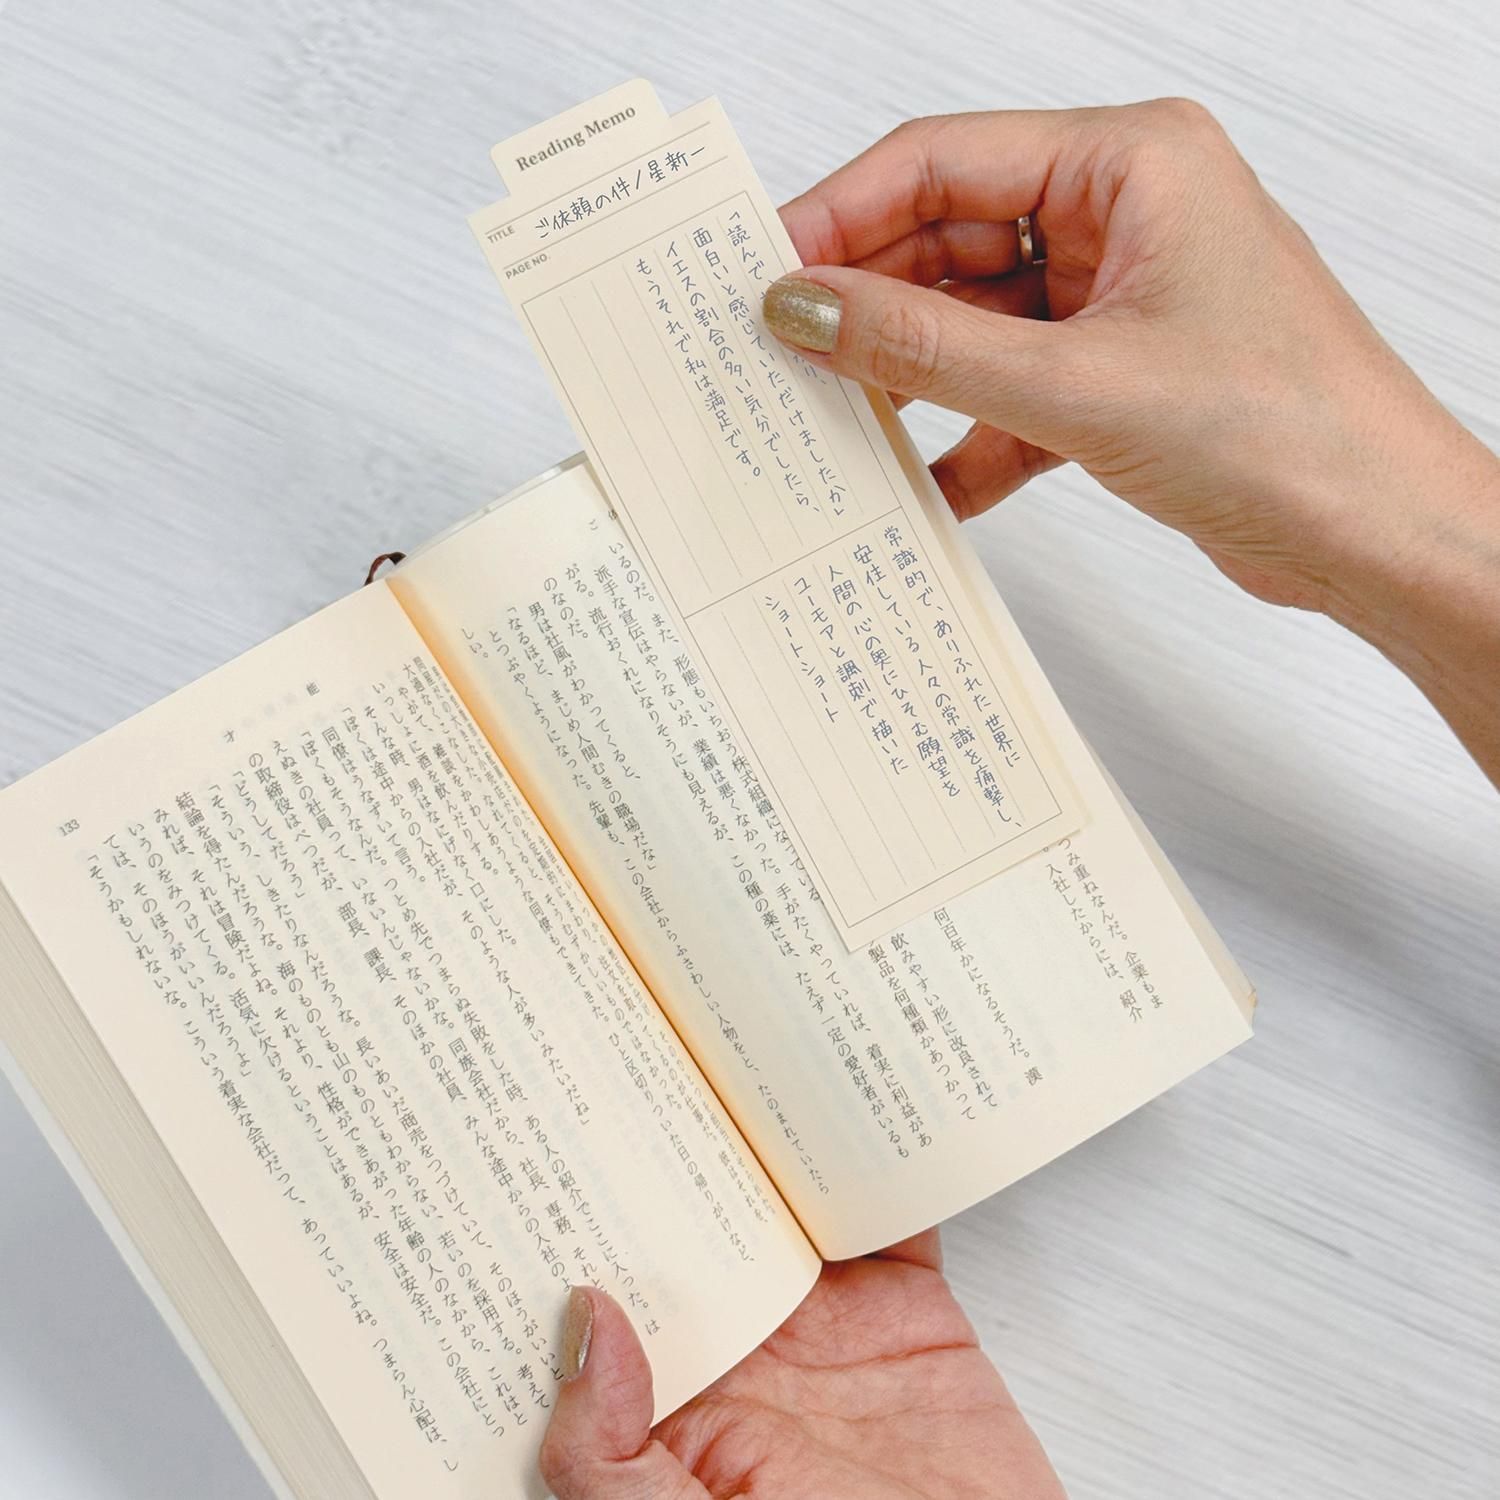 Reading Memo
TITLE ご依頼の件/星新一
PAGE NO.
「読んで、
面白いと感じていただけましたか」
イエスの割合の多い気分でしたら、
もうそれで私は満足です。
常識的で、ありふれた世界に
安住している人々の常識を痛撃し、
人間の心の奥にひそむ願望を
ユーモアと諷刺で描いた
ショートショート
つみ重ねなんだ。企業もま
。入社したからには、紹介
何百年かになるそうだ。漢
飲みやすい形に改良されて
製品を何種類かあつかって
いるのだ。また、形態もいちおう株式組織になっている。手がたくやっていれば、着実に利益があ
がる。流行おくれになりそうにも見えるが、この種の薬には、たえず一定の愛好者がいるも
のなのだ。
男は社風がわかってくると、
「なるほど、まじめ人間むきの職場だな」
とつぶやくようになった。先輩も、この会社からふさわしい人物をと、たのまれていたら
しい。
才能
133
いっしょに酒を飲んだりする。
そんな時、男はなにげなく口にした。
「ぼくは途中からの入社だが、そのような人が多いみたいだね」
同僚はうなずいて言う。
「ぼくもそうなんだ。つとめ先でつまらぬ失敗をした時、ある人の紹介でここに入った。は
えぬきの社員って、いないんじゃないかな。同族会社だから、社長、専務、それと
の取締役はべつだが、部長、課長、そのほかの社員、みんな途中からの入社のよ
「どうしてだろう」
「そういう、しきたりなんだろうな。長いあいだ商売をつづけていて、そのほうがいいと
結論を得たんだろうな。海のものとも山のものともわからない、若いのを採用する。考えて
みれば、それは冒険だよね。それより、性格ができあがった年齢の人のなかから、これはと
いうのをみつけてくる。活気に欠けるということはあるが、安全は安全だ。この会社にとっ
ては、そのほうがいいんだろうよ」
「そうかもしれないな。こういう着実な会社だって、あっていいよね。つまらん心配は、し